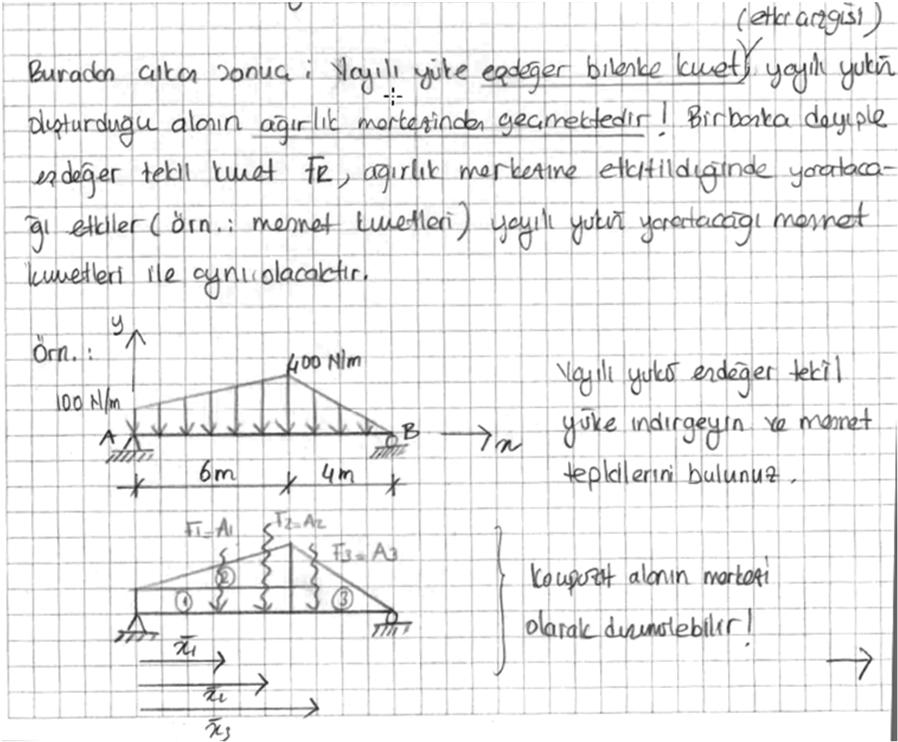 (etki çizgisi)
Buradan çıkan sonuç : Yayılı yüke eşdeğer bileşke kuvvet, yayılı yükün
oluşturduğu alanın ağırlık merkezinden geçmektedir! Bir başka deyişle
eşdeğer tekil kuvvet FR, ağırlık merkezine etkitildiğinde yarataca-
ğı etkiler (örn.: mesnet kuvvetleri) yayılı yükün yaratacağı mesnet
kuvvetleri ile aynı olacaktır.
Örn.:
y
400 N/m
100 N/m
A
B
x
6m
4m
Yayılı yükü eşdeğer tekil
yüke indirgeyin ve mesnet
tepkilerini bulunuz.
F1=A1
F2=A2
F3=A3
1
2
3
x̄1
x̄2
x̄3
Kompozit alanın merkezi
olarak düşünülebilir!